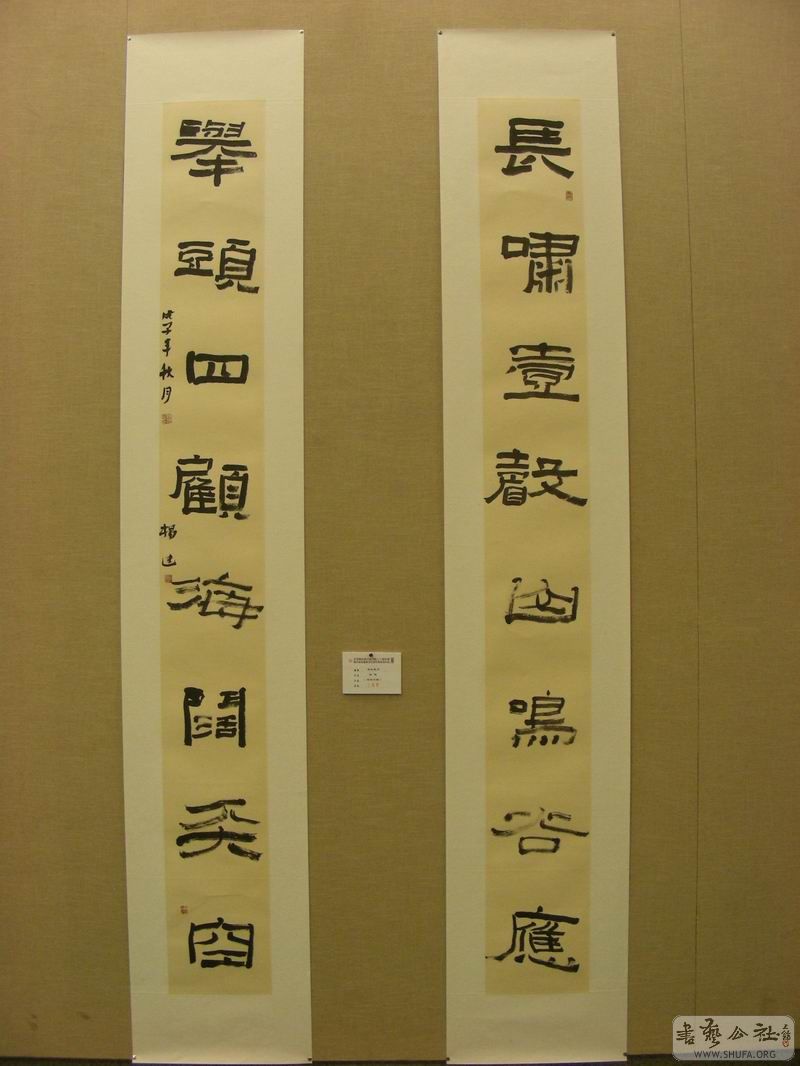 長嘯壹聲山鳴谷應
舉頭四顧海闊天空
戊子年秋月
楊達
書藝公社
WWW.SHUFA.ORG